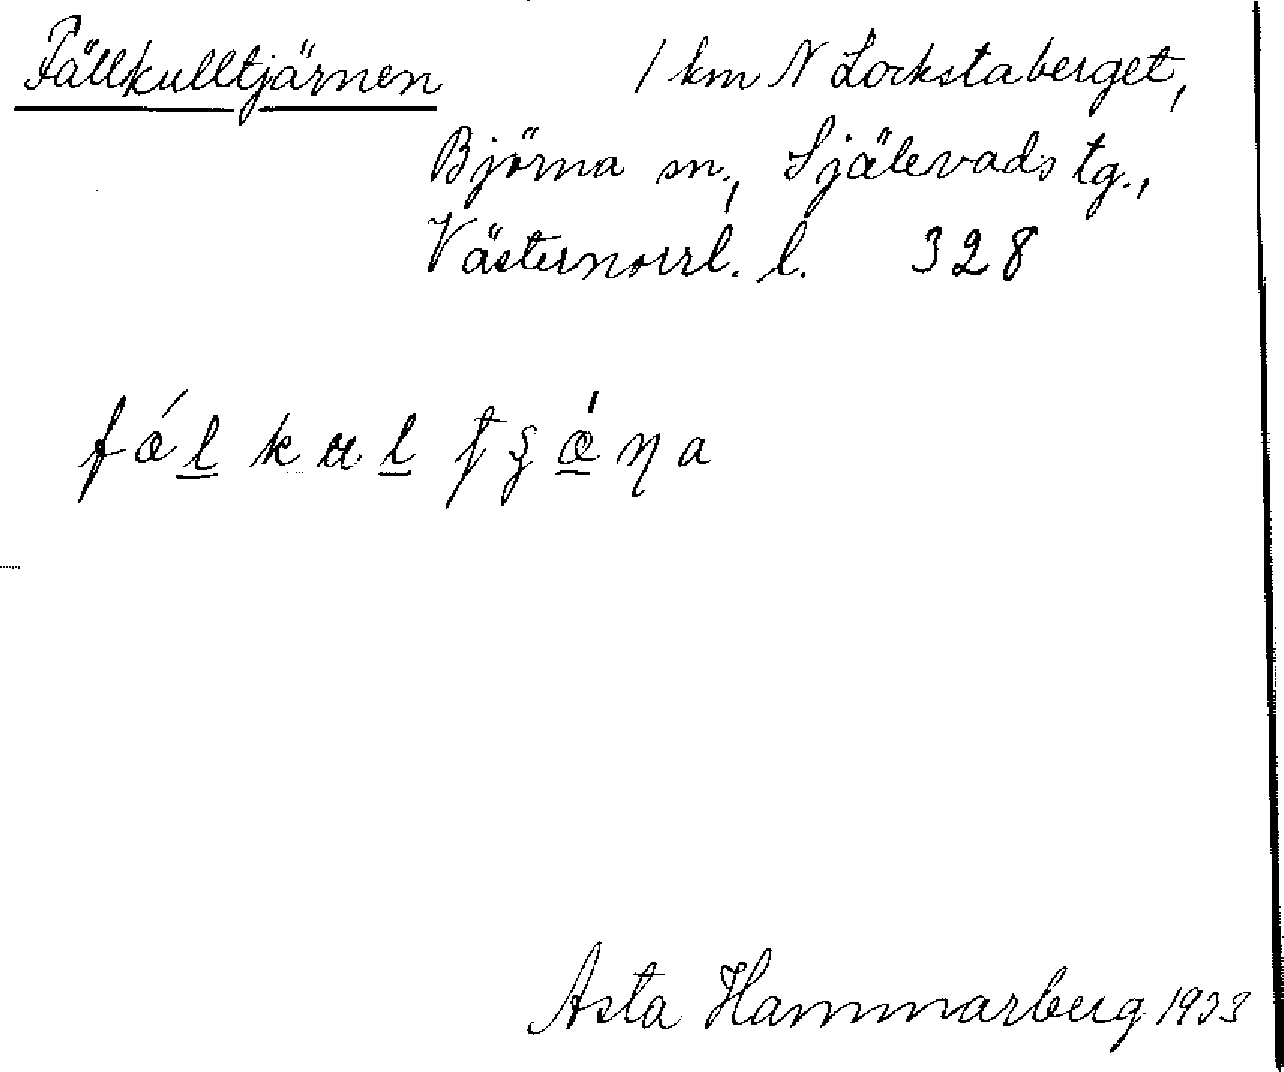 Fällkulltjärnen 1 km N Lockstaberget,
Björna sn, Själevads tg.,
Västernorrl. l. 328
fǽl̲ kul̲ tʂǽ̲ṇa
Asta Hammarberg 1933